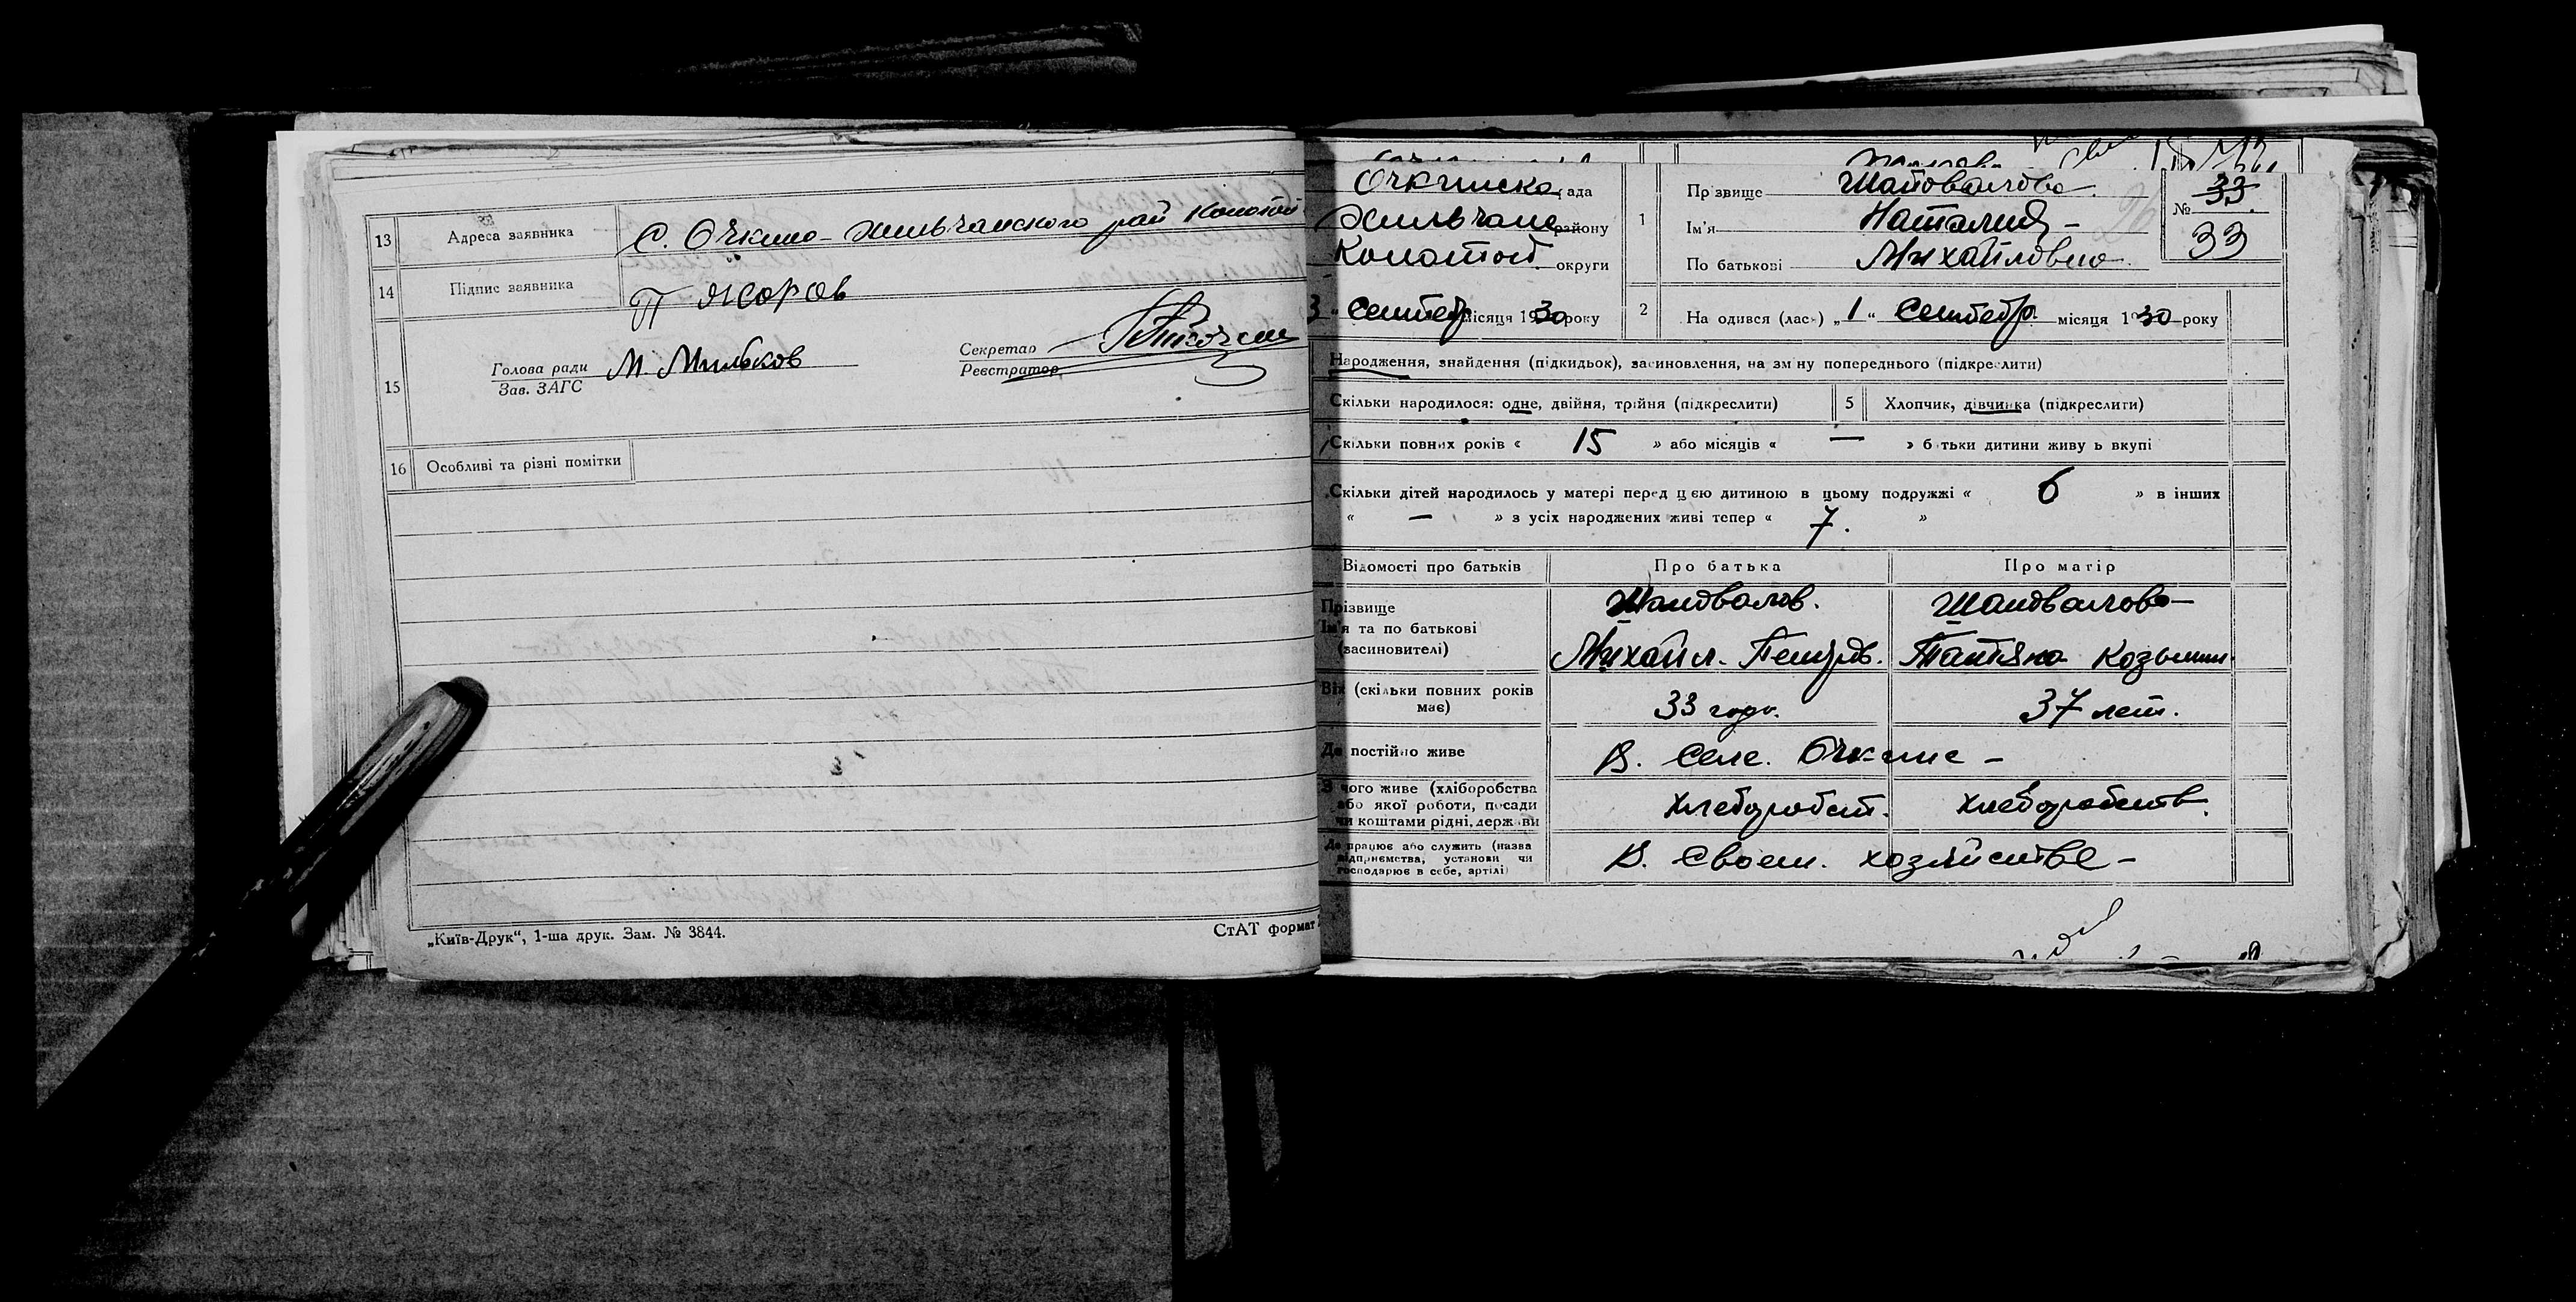 13 Адреса заявника С. Очкино - Хильчанского рай Конотоп
14 Підпис заявника П Жоров
15 Голова ради М. Мильков
Зав. ЗАГС
Секретар
Реєстратор
16 Особливі та різні помітки
„Київ-Друк“, 1-ша друк. Зам. № 3844.
СтАТ формат
Очкинска рада
Хильчанс району
Конотоп округи
3 " Сентебр місяця 1930 року
1 Прізвище Шаповалова
Ім'я Наталия -
По батькові Михайловна
№ 33
33
2 На одився (лась) „1“ Сентебр. місяця 1930 року
Народження, знайдення (підкидьок), засиновлення, на зміну попереднього (підкреслити)
Скільки народилося: одне, двійня, трійня (підкреслити)
5 Хлопчик, дівчинка (підкреслити)
Скільки повних років « 15 » або місяців « — » батьки дитини живуть вкупі
Скільки дітей народилось у матері перед цією дитиною в цьому подружжі « 6 » в інших
« — » з усіх народжених живі тепер « 7. »
Відомості про батьків Про батька Про матір
Прізвище Шаповалов. Шаповалова -
Ім'я та по батькові
(засиновителі) Михаил. Петров. Татяна Козьмин.
Вік (скільки повних років
має) 33 года. 37 лет.
Де постійно живе В. Селе. Очкине -
З чого живе (хліборобства
або якої роботи, посади
чи коштами рідні, держави Хлеборобст. Хлеборобств.
Де працює або служить (назва
підприємства, установи чи
господарює в себе, артілі) В. Своем. хозяйстве -